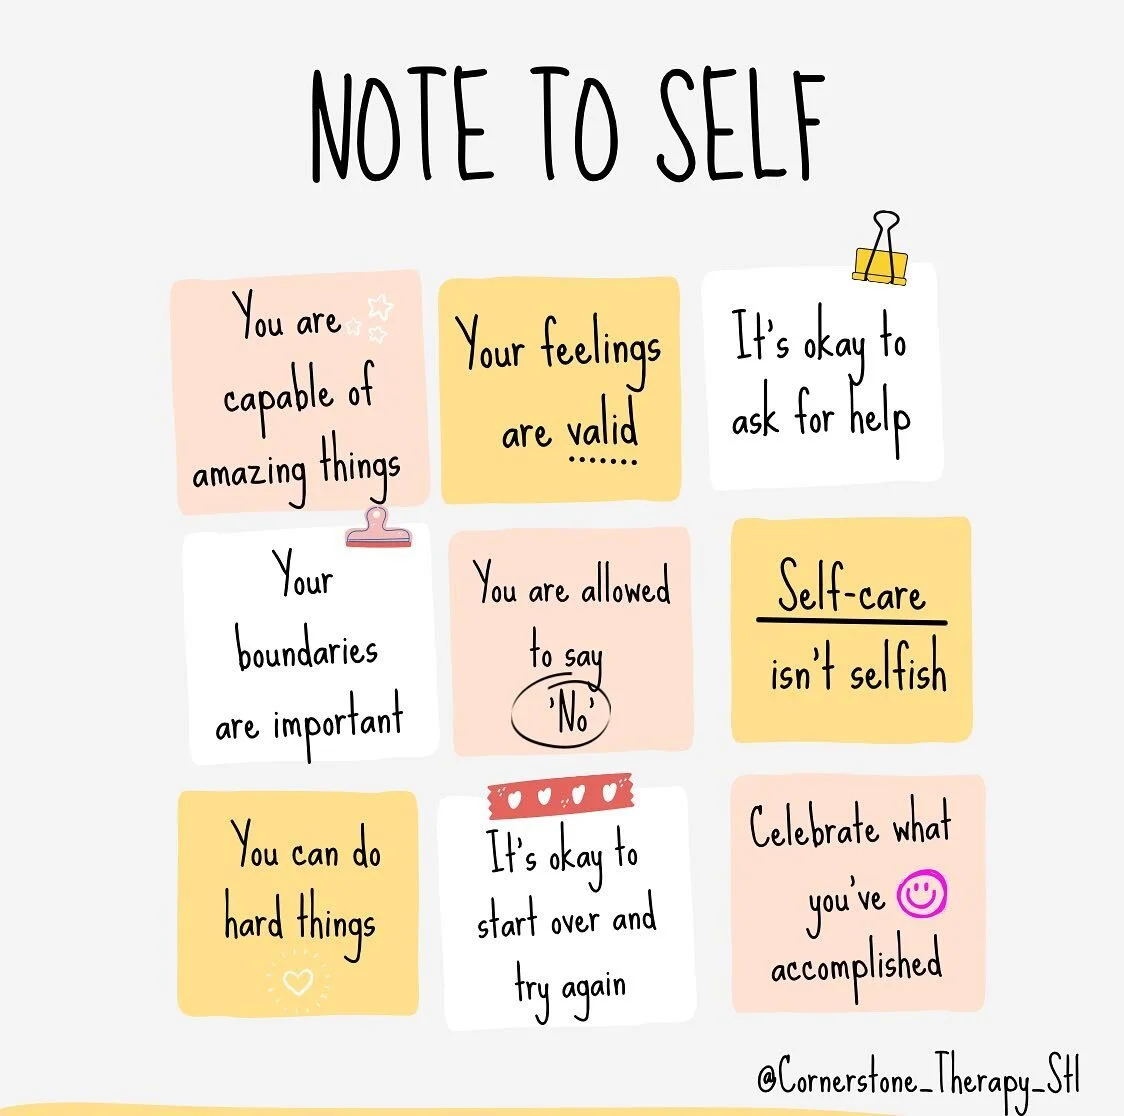 NOTE TO SELF
You are
capable of
amazing things
Your feelings
are valid
It's okay to
ask for help
Your
boundaries
are important
You are allowed
to say
'No'
Self-care
isn't selfish
You can do
hard things
It's okay to
start over and
try again
Celebrate what
you've
accomplished
@Cornerstone_Therapy_Stl